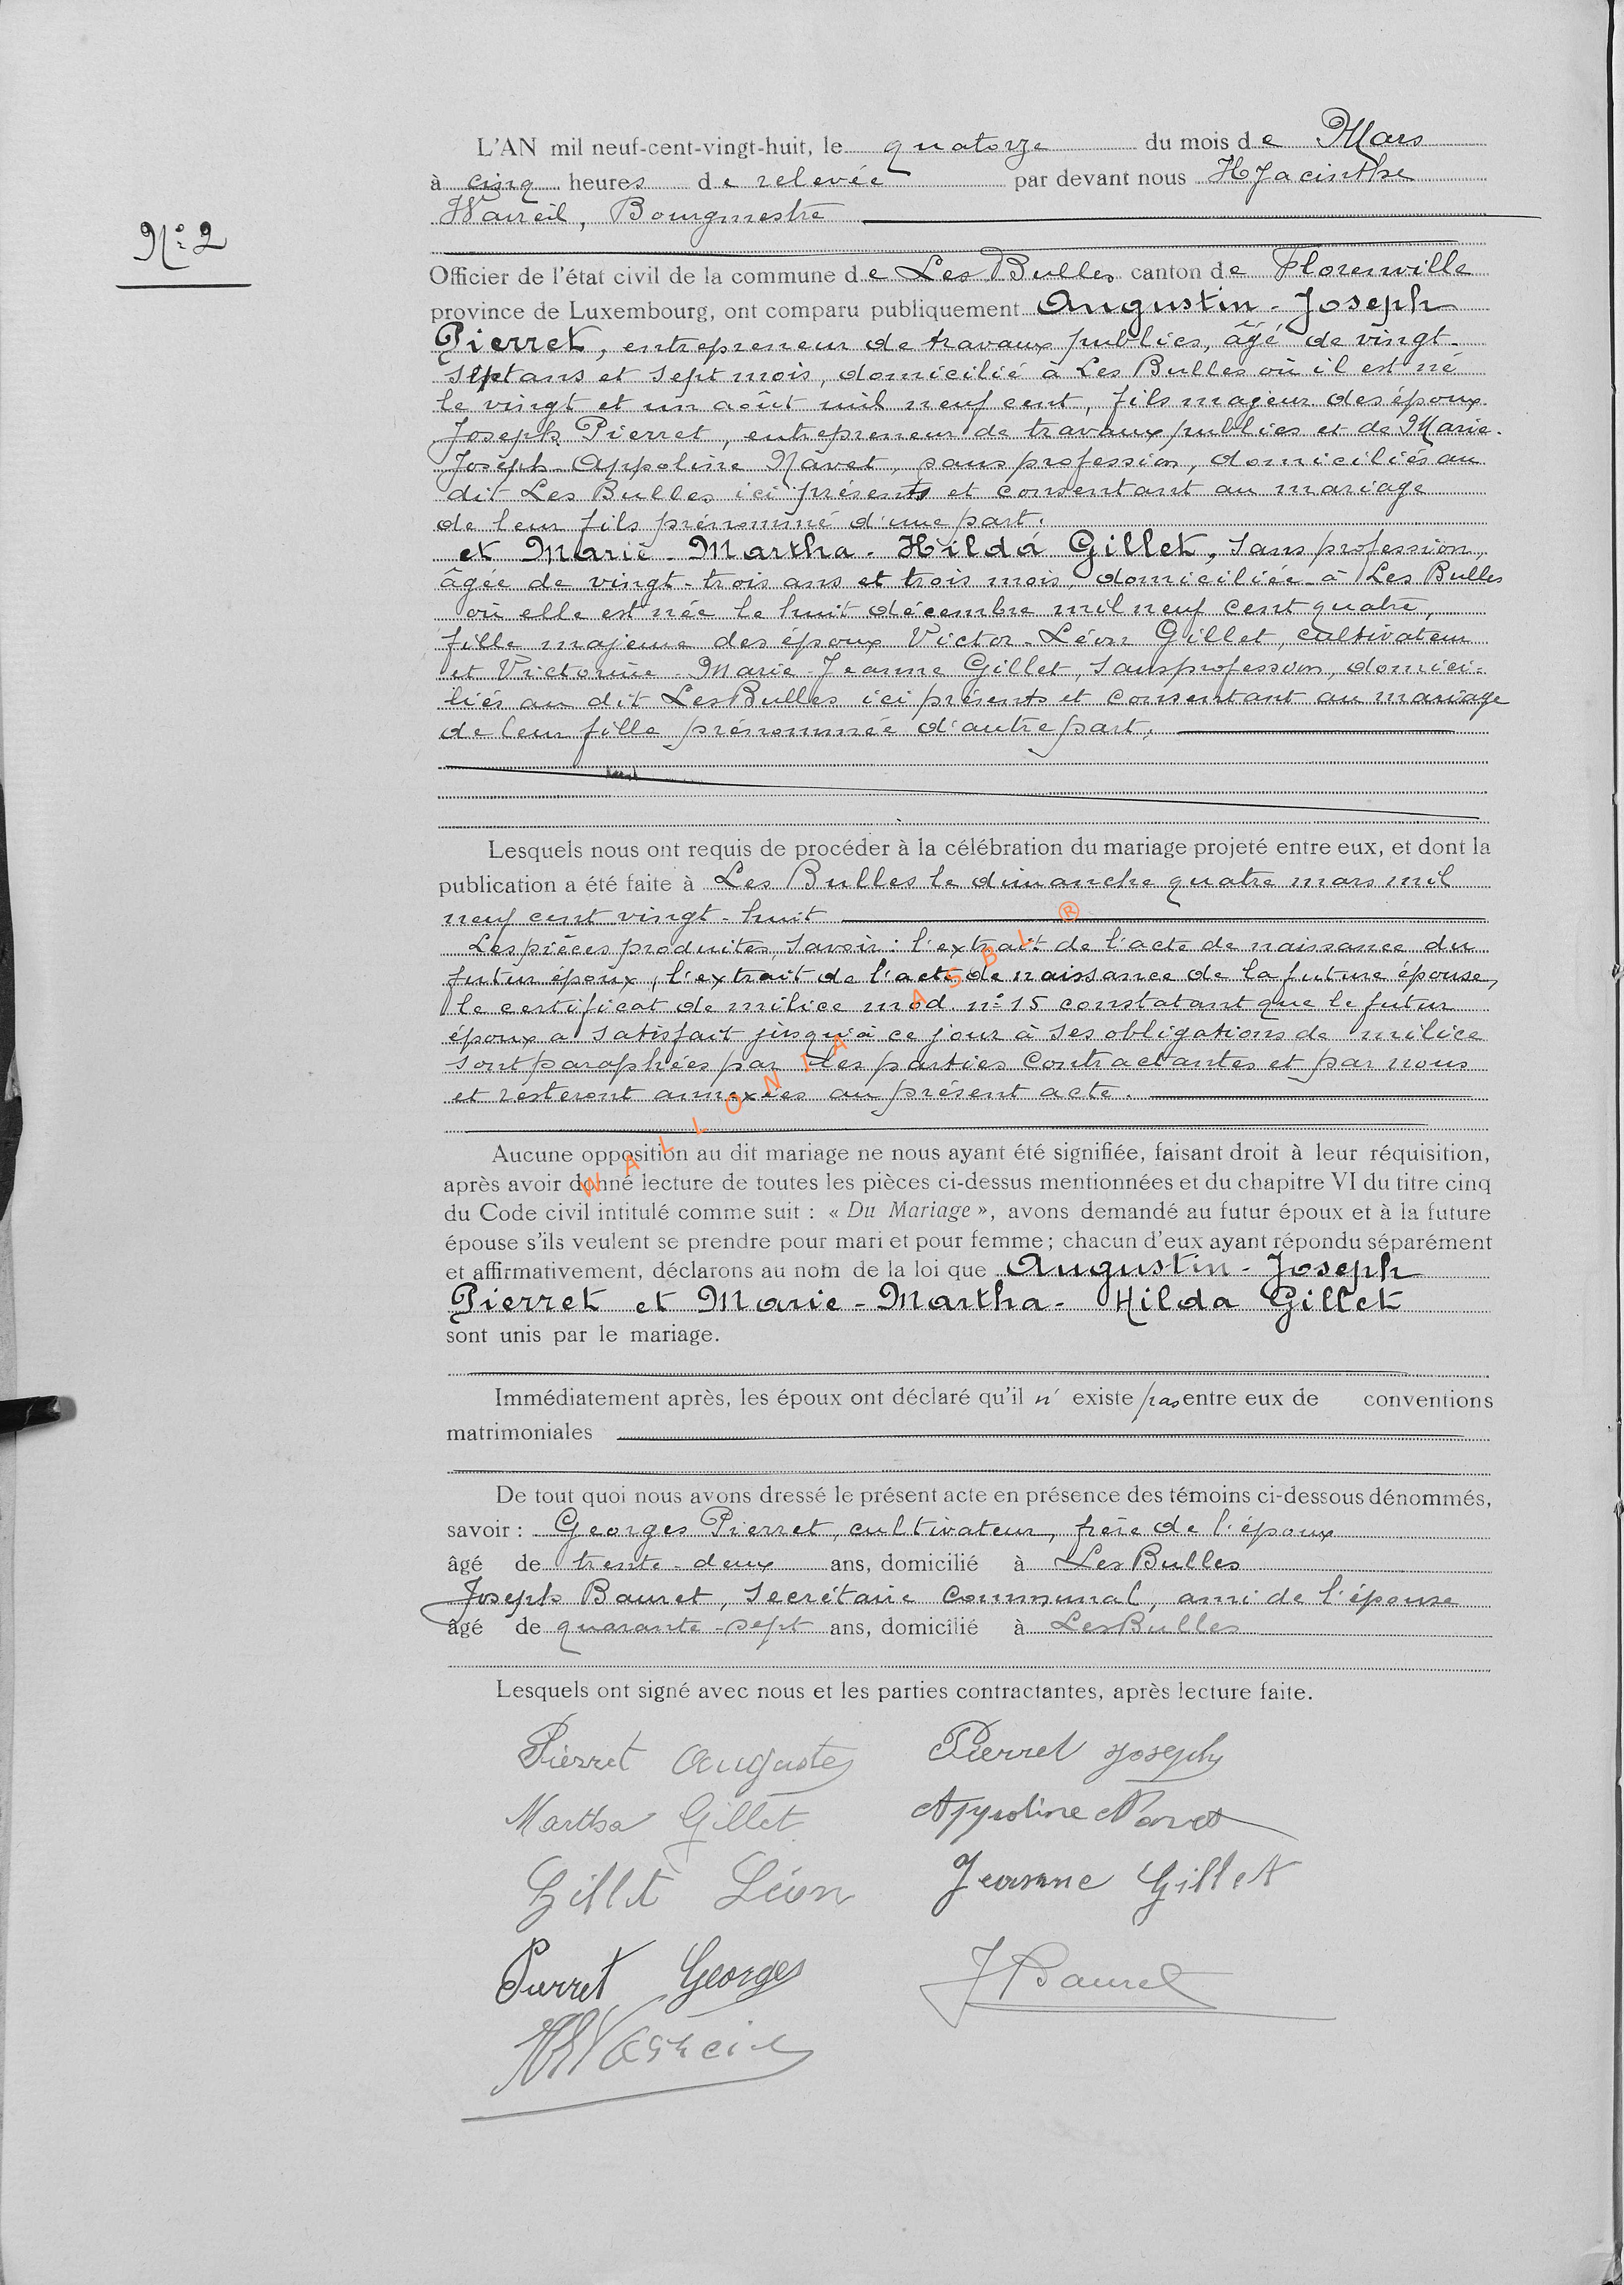 N° 2
L'AN mil neuf-cent-vingt-huit, le quatorze du mois de Mars
à cinq heures de relevée par devant nous Hyacinthe
Warreil, Bourgmestre
Officier de l'état civil de la commune de Les Bulles canton de Florenville
province de Luxembourg, ont comparu publiquement Augustin-Joseph
Pierret, entrepreneur de travaux publics, âgé de vingt-
sept ans et sept mois, domicilié à Les Bulles où il est né
le vingt et un août mil neuf cent, fils majeur des époux
Joseph Pierret, entrepreneur de travaux publics et de Marie-
Joseph-Appoline Navet, sans profession, domiciliés au
dit Les Bulles ici présents et consentant au mariage
de leur fils prénommé d'une part.
et Marie-Martha-Hilda Gillet, sans profession,
âgée de vingt-trois ans et trois mois, domiciliée à Les Bulles
où elle est née le huit décembre mil neuf cent quatre,
fille majeure des époux Victor-Léon Gillet, cultivateur
et Victorine-Marie-Jeanne Gillet, sans profession, domici-
liés au dit Les Bulles ici présents et consentant au mariage
de leur fille prénommée d'autre part.
Lesquels nous ont requis de procéder à la célébration du mariage projeté entre eux, et dont la
publication a été faite à Les Bulles le dimanche quatre mars mil
neuf cent vingt-huit
Les pièces produites, savoir : l'extrait de l'acte de naissance du
futur époux, l'extrait de l'acte de naissance de la future épouse,
le certificat de milice mod. n° 15 constatant que le futur
époux a satisfait jusqu'à ce jour à ses obligations de milice
sont paraphées par les parties contractantes et par nous
et resteront annexées au présent acte.
WALLONIA ASBL ®
Aucune opposition au dit mariage ne nous ayant été signifiée, faisant droit à leur réquisition,
après avoir donné lecture de toutes les pièces ci-dessus mentionnées et du chapitre VI du titre cinq
du Code civil intitulé comme suit : « Du Mariage », avons demandé au futur époux et à la future
épouse s'ils veulent se prendre pour mari et pour femme ; chacun d'eux ayant répondu séparément
et affirmativement, déclarons au nom de la loi que Augustin-Joseph
Pierret et Marie-Martha-Hilda Gillet
sont unis par le mariage.
Immédiatement après, les époux ont déclaré qu'il n' existe pas entre eux de conventions
matrimoniales
De tout quoi nous avons dressé le présent acte en présence des témoins ci-dessous dénommés,
savoir : Georges Pierret, cultivateur, frère de l'époux
âgé de trente-deux ans, domicilié à Les Bulles
Joseph Bauret, secrétaire communal, ami de l'épouse
âgé de quarante-sept ans, domicilié à Les Bulles
Lesquels ont signé avec nous et les parties contractantes, après lecture faite.
Pierret Auguste Pierret Joseph
Martha Gillet Appoline Navet
Gillet Léon Jeanne Gillet
Pierret Georges J Bauret